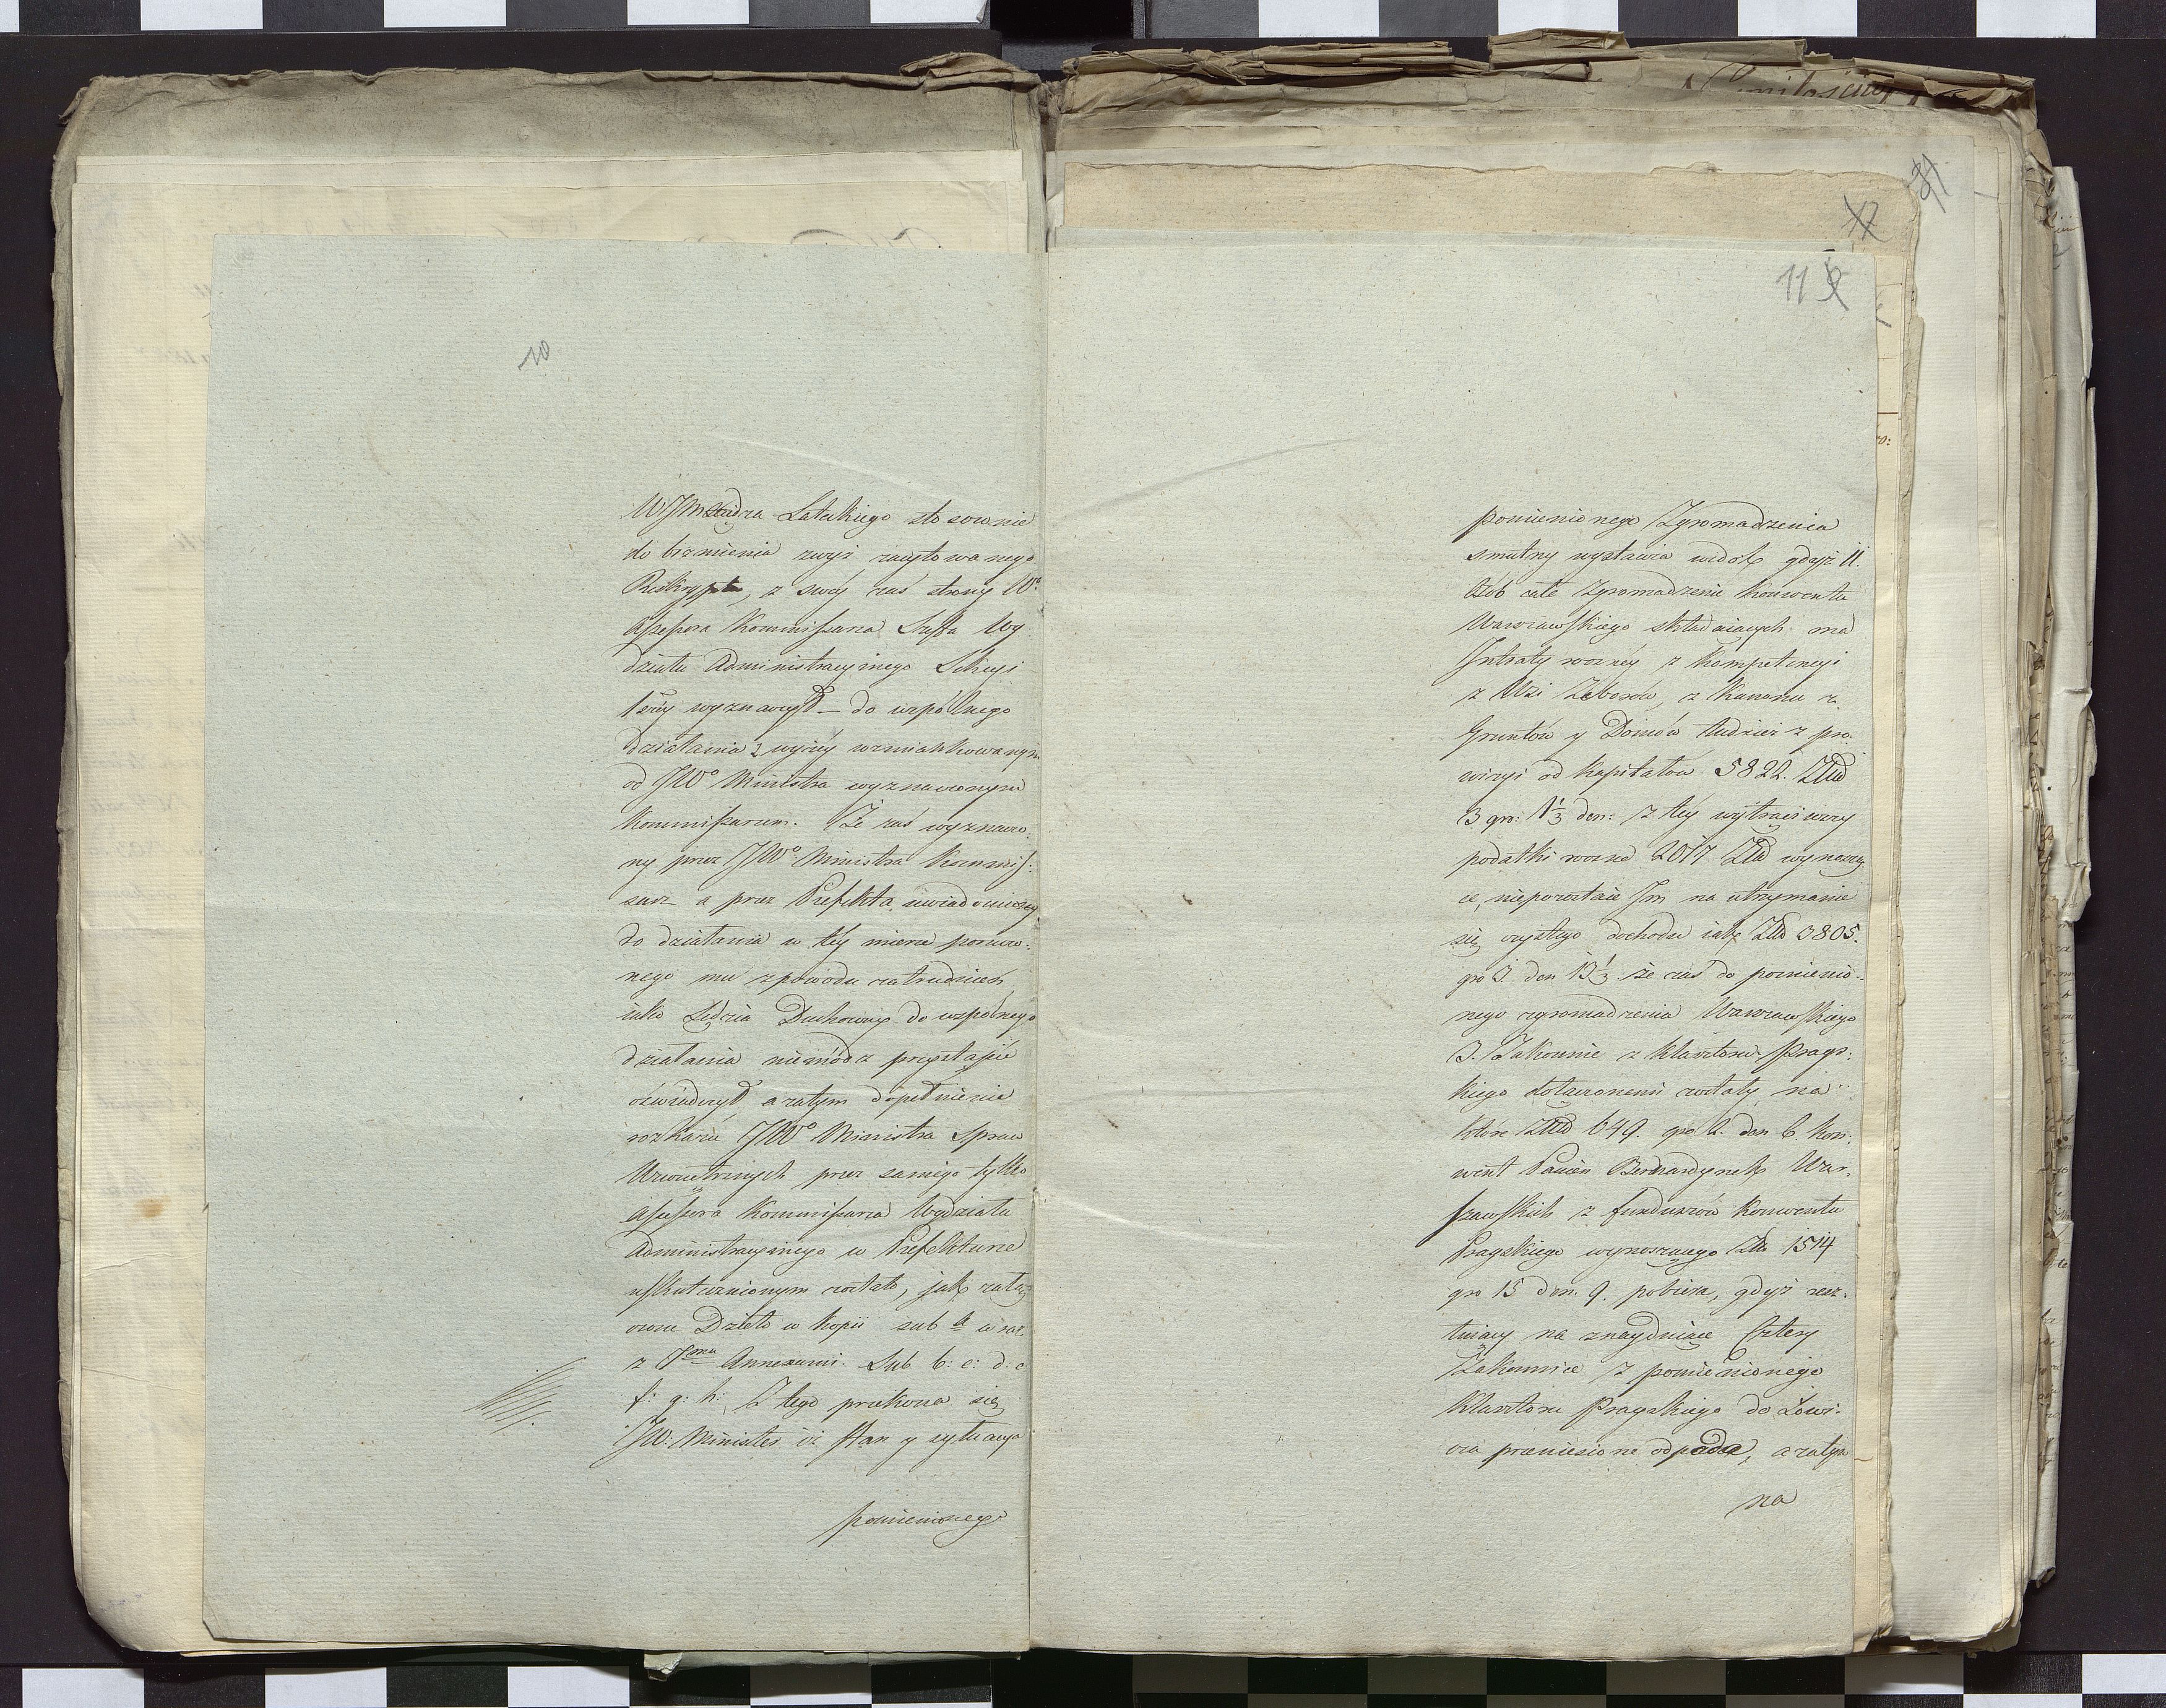 10
WJMXiędza Lateckiego stosownie
do brzmienia zwyż zacytowanego
Reskryptu, z swey zaś strony Wo
Assessora Kommissarza Szefa Wy-
działu Administracyinego Sekcyi
1szey wyznaczył – do wspólnego
działania z wyżey wzmiankowanym
od JWo Ministra wyznaczonym
Kommissarzem. Że zaś wyznaczo-
ny przez JWo Ministra Kommis-
sarz a przez Prefekta uwiadomiony
do działania w tey mierze porucze-
nego mu z powodu zatrudnień
iako Sędzia Duchowny do wspólnego
działania niemodz przystąpić
oświadczył a zatym dopełnienie
rozkazu JWo Ministra Spraw
Wewnetrznych przez samego tylko
Assessora Kommissarza Wydziału
Administracyinego w Prefekturze
uskutecznionym zostało, jak załą-
czone Dzieło w Kopii sub a wraz
z 7ma Annexami Sub b: c: d: e
f: g: h: Z tego przekona się
JW: Minister iż stan y sytuacya
pomienionego
81
12
11
pomienionego Zgromadzenia
smutny wystawia widok gdyż 11.
Osob całe Zgromadzenie Konwentu
Warszawskiego składaiących ma
Intraty roczney z Kompetencyi
z Wsi Zeborów, z Kanonu z
Gruntów y Domów tudzież z pro-
wizyi od Kapitałów 5822. Złł
3 gr: 1⅓ den: z tey wytrąciwszy
podatki roczne 2017 Złł wynoszą-
ce, niepozostaie Im na utrzymanie
się czystego dochodu iak Złł 3805.
gr 3. den 13⅓ że zaś do pomienio-
nego zgromadzenia Warszawskiego
3. Zakonnice z Klasztoru Prags-
kiego dołączonemi zostały na
które Złł 649. gr 2. den 6. Kon-
went Panien Bernardynek War-
szawskich z funduszów Konwentu
Pragskiego wynoszącego Złł 1514
gr 15 den. 9. pobiera, gdyż resz-
ta na znayduiące Cztery
Zakonnice z pomienionego
Klasztoru Pragskiego do Łowi-
cza przeniesione odpada, a zatym
na